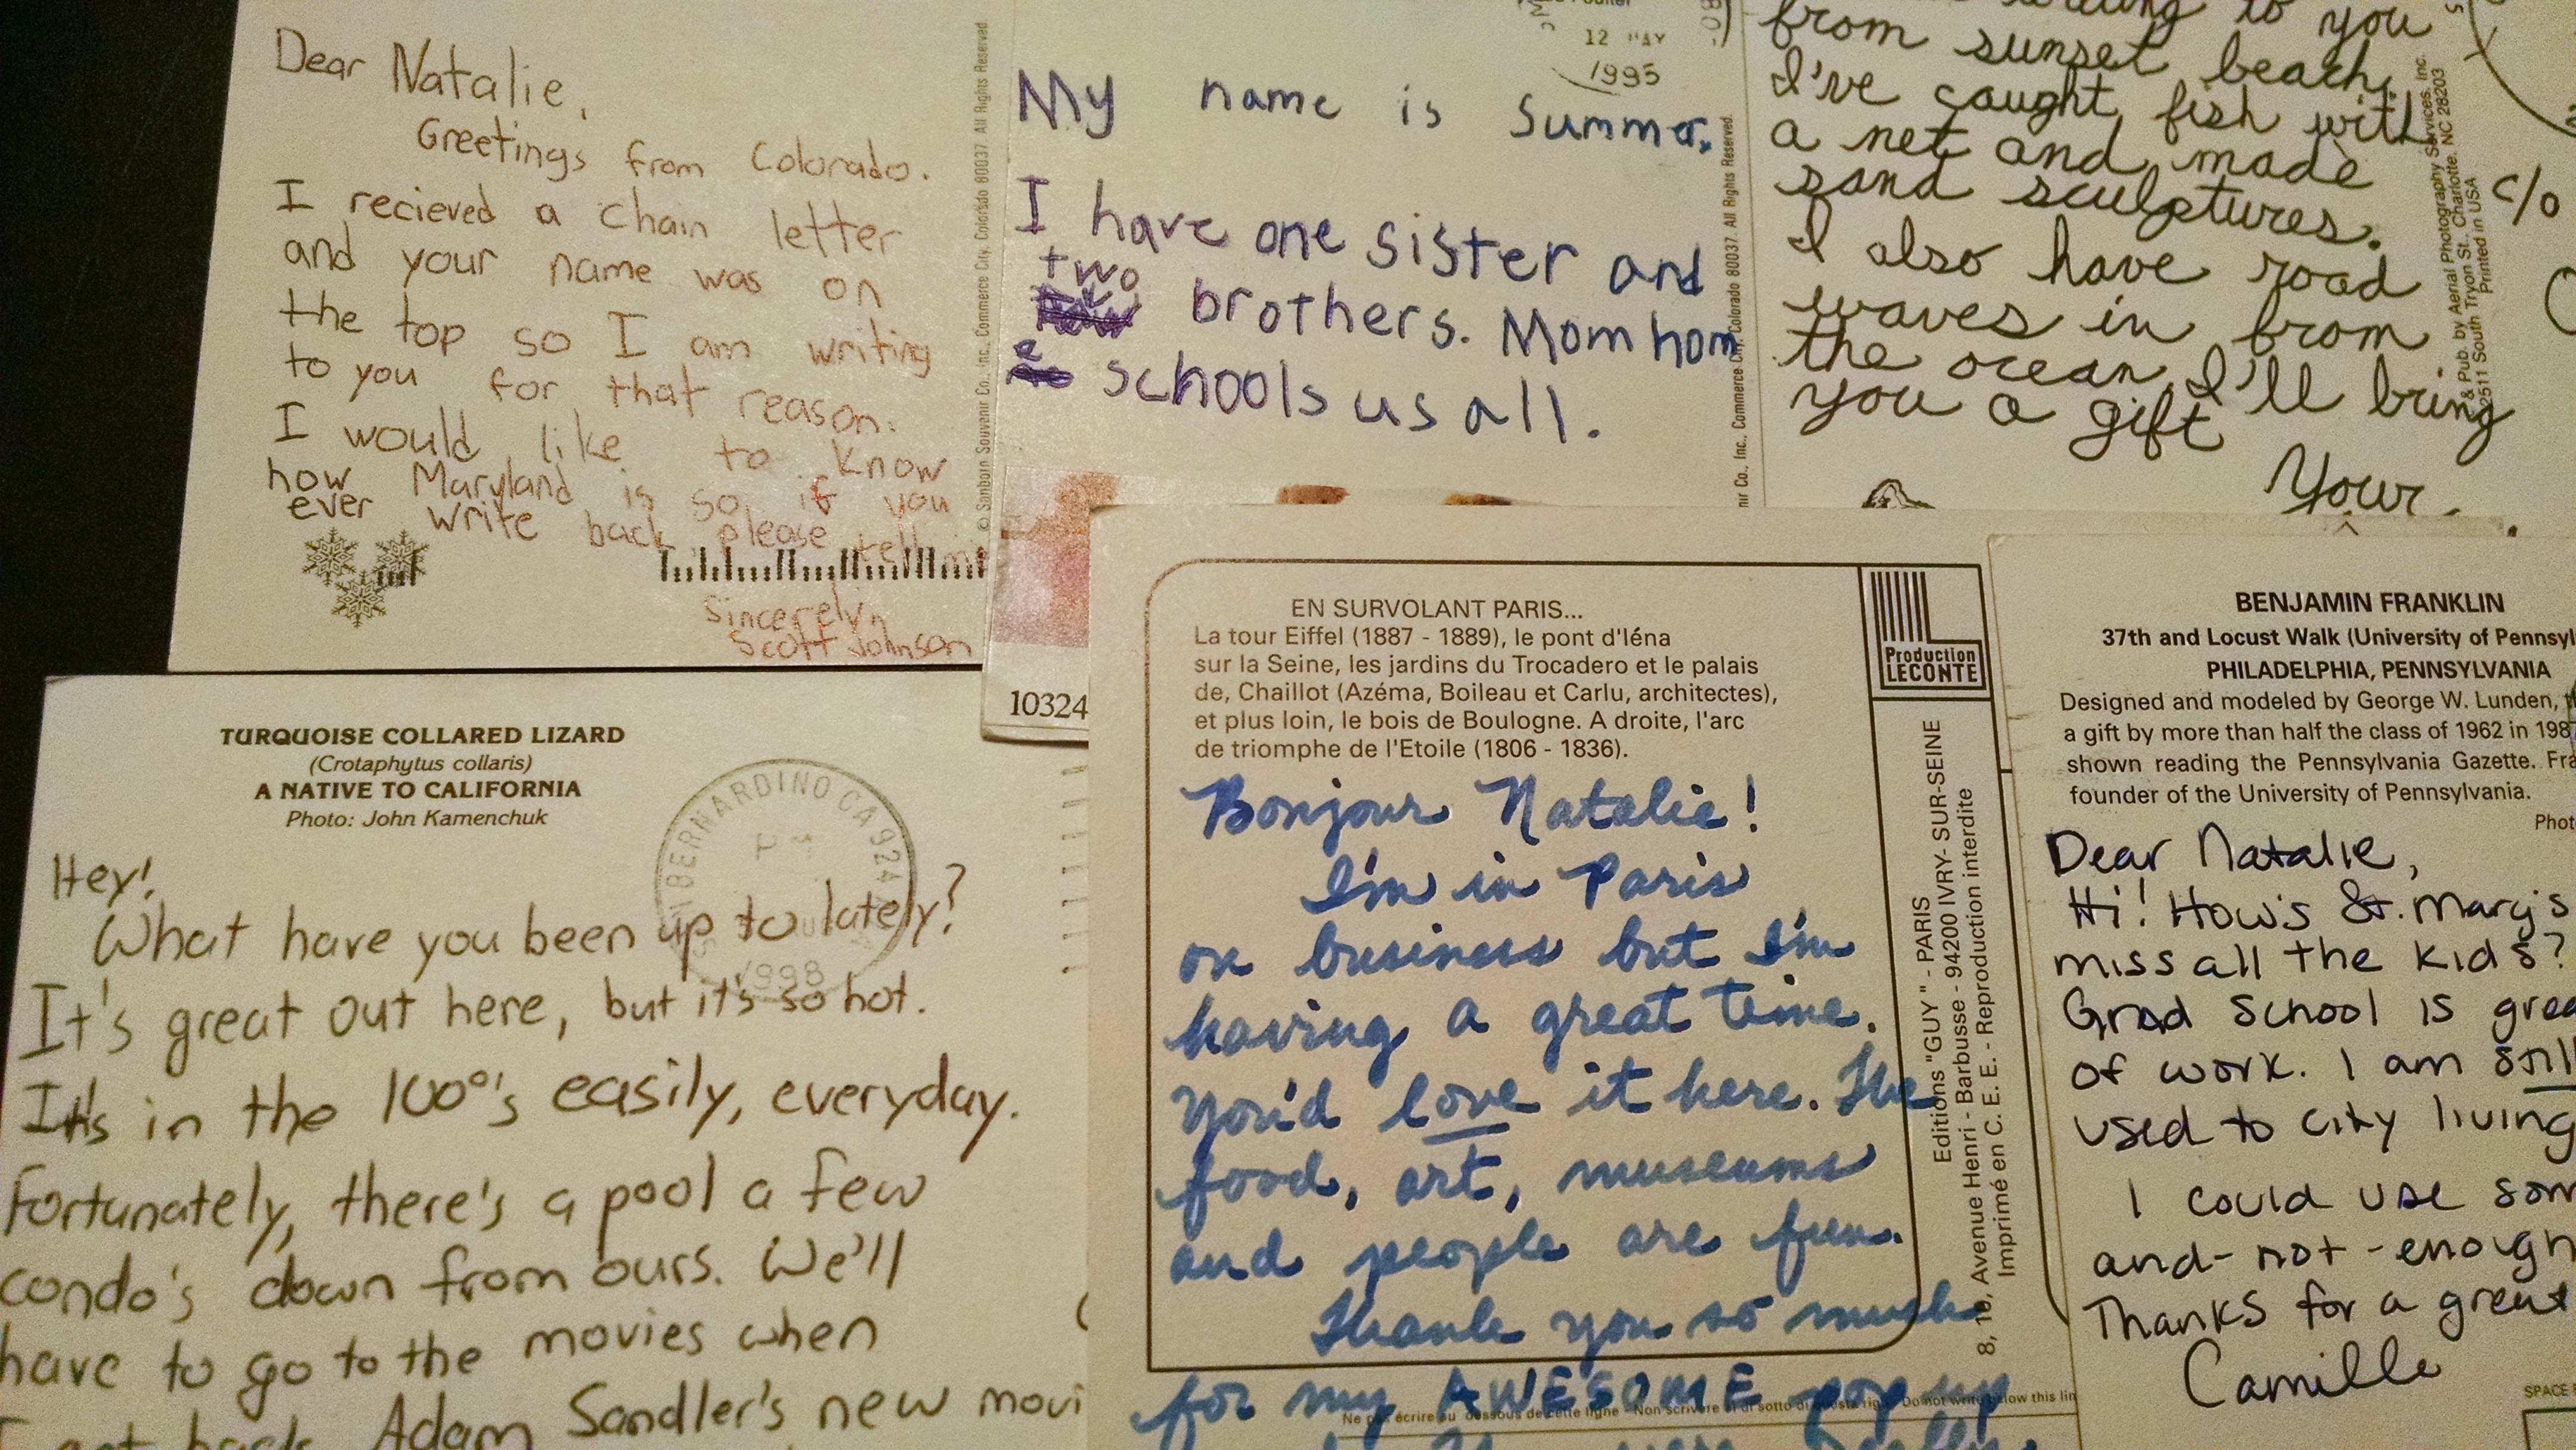 Dear Natalie,
Greetings from Colorado.
I recieved a chain letter
and your name was on
the top so I am writing
to you for that reason.
I would like to know
how Maryland is so if you
ever write back please tell
Sincerely,
Scott Johnson
© Sanborn Souvenir Co., Inc., Commerce City, Colorado 80037. All Rights Reserved
12 MAY
1995
My name is Summer.
I have one sister and
two
brothers. Mom hom
e schools us all.
nir Co., Inc., Commerce City, Colorado 80037. All Rights Reserved.
10324
to you
from sunset beach.
I've caught fish with
a net and made
sand sculptures.
I also have road
waves in from
the ocean, I'll bring
you a gift
Your
& Pub. by Aerial Photography Services, Inc.
2511 South Tryon St., Charlotte, NC 28203
Printed in USA
c/o
TURQUOISE COLLARED LIZARD
(Crotaphytus collaris)
A NATIVE TO CALIFORNIA
Photo: John Kamenchuk
BERNARDINO CA 924
PM
1998
Hey!
What have you been up to lately?
It's great out here, but it's so hot.
It's in the 100°'s easily, everyday.
Fortunately, there's a pool a few
condo's down from ours. We'll
have to go to the movies when
I get back. Adam Sandler's new movi
EN SURVOLANT PARIS...
La tour Eiffel (1887 - 1889), le pont d'Iéna
sur la Seine, les jardins du Trocadero et le palais
de, Chaillot (Azéma, Boileau et Carlu, architectes),
et plus loin, le bois de Boulogne. A droite, l'arc
de triomphe de l'Etoile (1806 - 1836).
Production
LECONTE
Bonjour Natalie!
I'm in Paris
on business but I'm
having a great time.
You'd love it here. The
food, art, museums
and people are fun.
Thank you so much
for my AWESOME pop up
Ne pas écrire au dessous de cette ligne - Non scrivere al di sotto di questa riga - Do not write below this lin
Editions "GUY" - PARIS
8, 10, Avenue Henri - Barbusse - 94200 IVRY- SUR-SEINE
Imprimé en C. E. E. - Reproduction interdite
BENJAMIN FRANKLIN
37th and Locust Walk (University of Pennsyl
PHILADELPHIA, PENNSYLVANIA
Designed and modeled by George W. Lunden,
a gift by more than half the class of 1962 in 198
shown reading the Pennsylvania Gazette. Fra
founder of the University of Pennsylvania.
Phot
Dear Natalie,
Hi! How's St. Mary's
miss all the kids?
Grad school is grea
of work. I am still
used to city living
I could use som
and-not-enough
Thanks for a great
Camille
SPACE